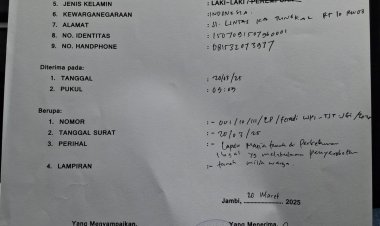 5. JENIS KELAMIN : LAKI-LAKI / PEREMPUAN
6. KEWARGANEGARAAN : INDONESIA
7. ALAMAT : Jl. LINTAS KA TUNGKAL RT 10 RW 03
8. NO. IDENTITAS
9. NO. HANDPHONE : 081532073937
Diterima pada:
1. TANGGAL : 20/03/25
2. PUKUL : 09:09
Berupa:
1. NOMOR : - 001/10/111/
2. TANGGAL SURAT : - 20/03/25
3. PERIHAL : - Lapor Mafia tanah & Perkebunan
ilegal yg melakukan penyerobotan
4. LAMPIRAN : - tanah milik warga.
Jambi, 20 Maret 2025
Yang Menyampaikan, Yang Menerima